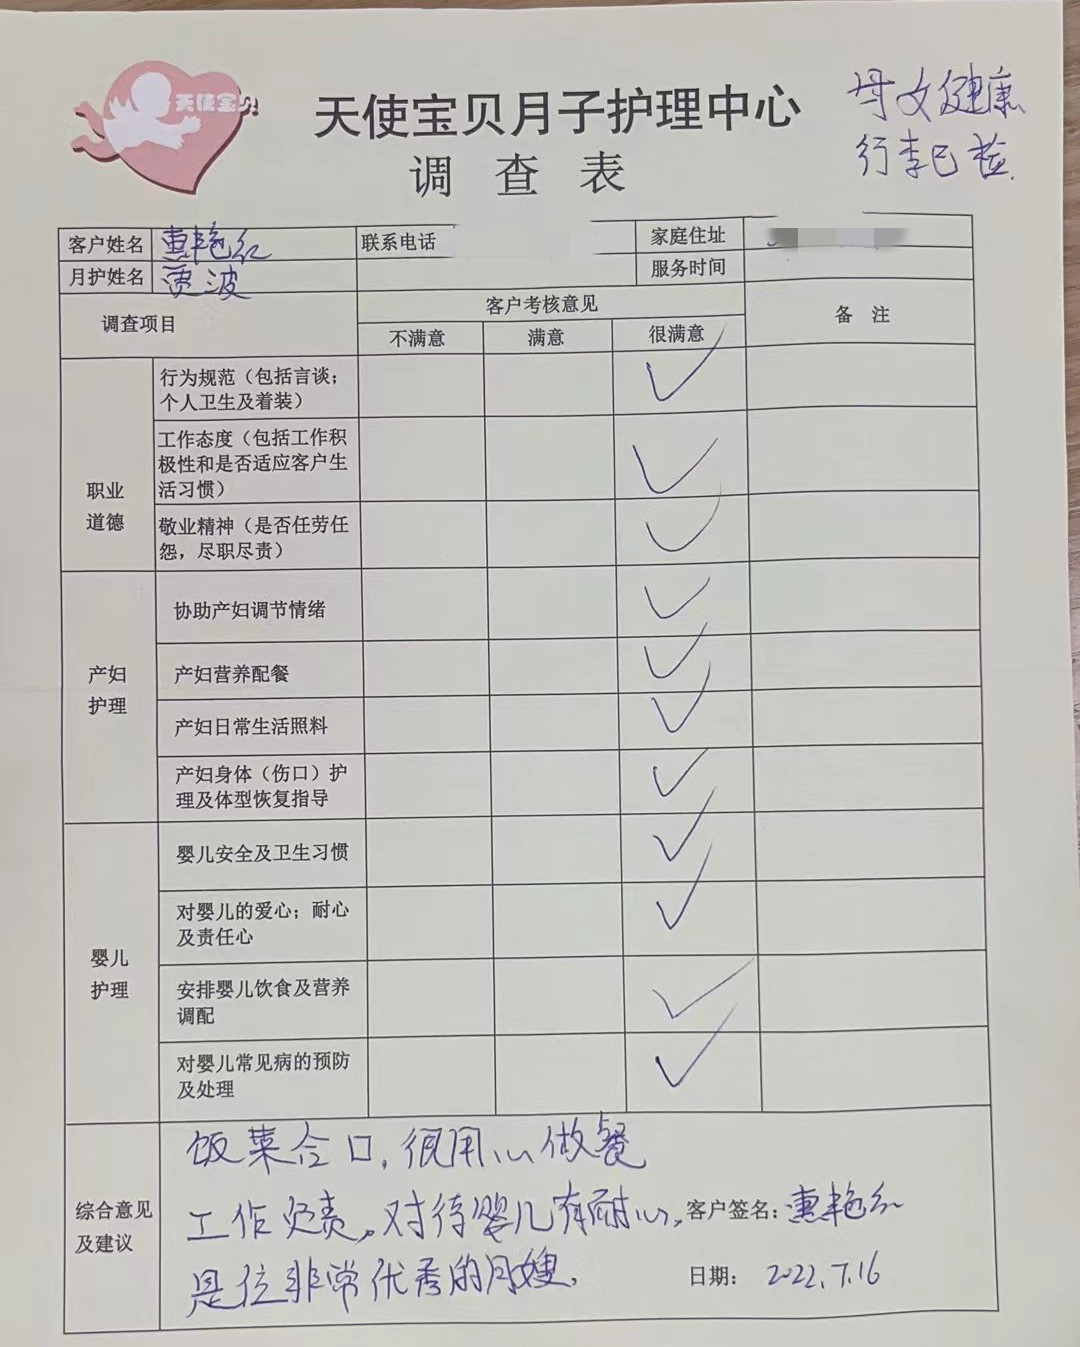 天使宝贝
天使宝贝月子护理中心
母女健康
调查表
行李已检.
客户姓名 惠艳红 联系电话 家庭住址
月护姓名 贾波 服务时间
调查项目 客户考核意见 备 注
不满意 满意 很满意
职业
道德
行为规范（包括言谈；
个人卫生及着装）
工作态度（包括工作积
极性和是否适应客户生
活习惯）
敬业精神（是否任劳任
怨，尽职尽责）
产妇
护理
协助产妇调节情绪
产妇营养配餐
产妇日常生活照料
产妇身体（伤口）护
理及体型恢复指导
婴儿
护理
婴儿安全及卫生习惯
对婴儿的爱心；耐心
及责任心
安排婴儿饮食及营养
调配
对婴儿常见病的预防
及处理
综合意见
及建议
饭菜合口，很用心做餐
工作负责，对待婴儿有耐心，
是位非常优秀的月嫂.
客户签名：惠艳红
日期： 2022.7.16